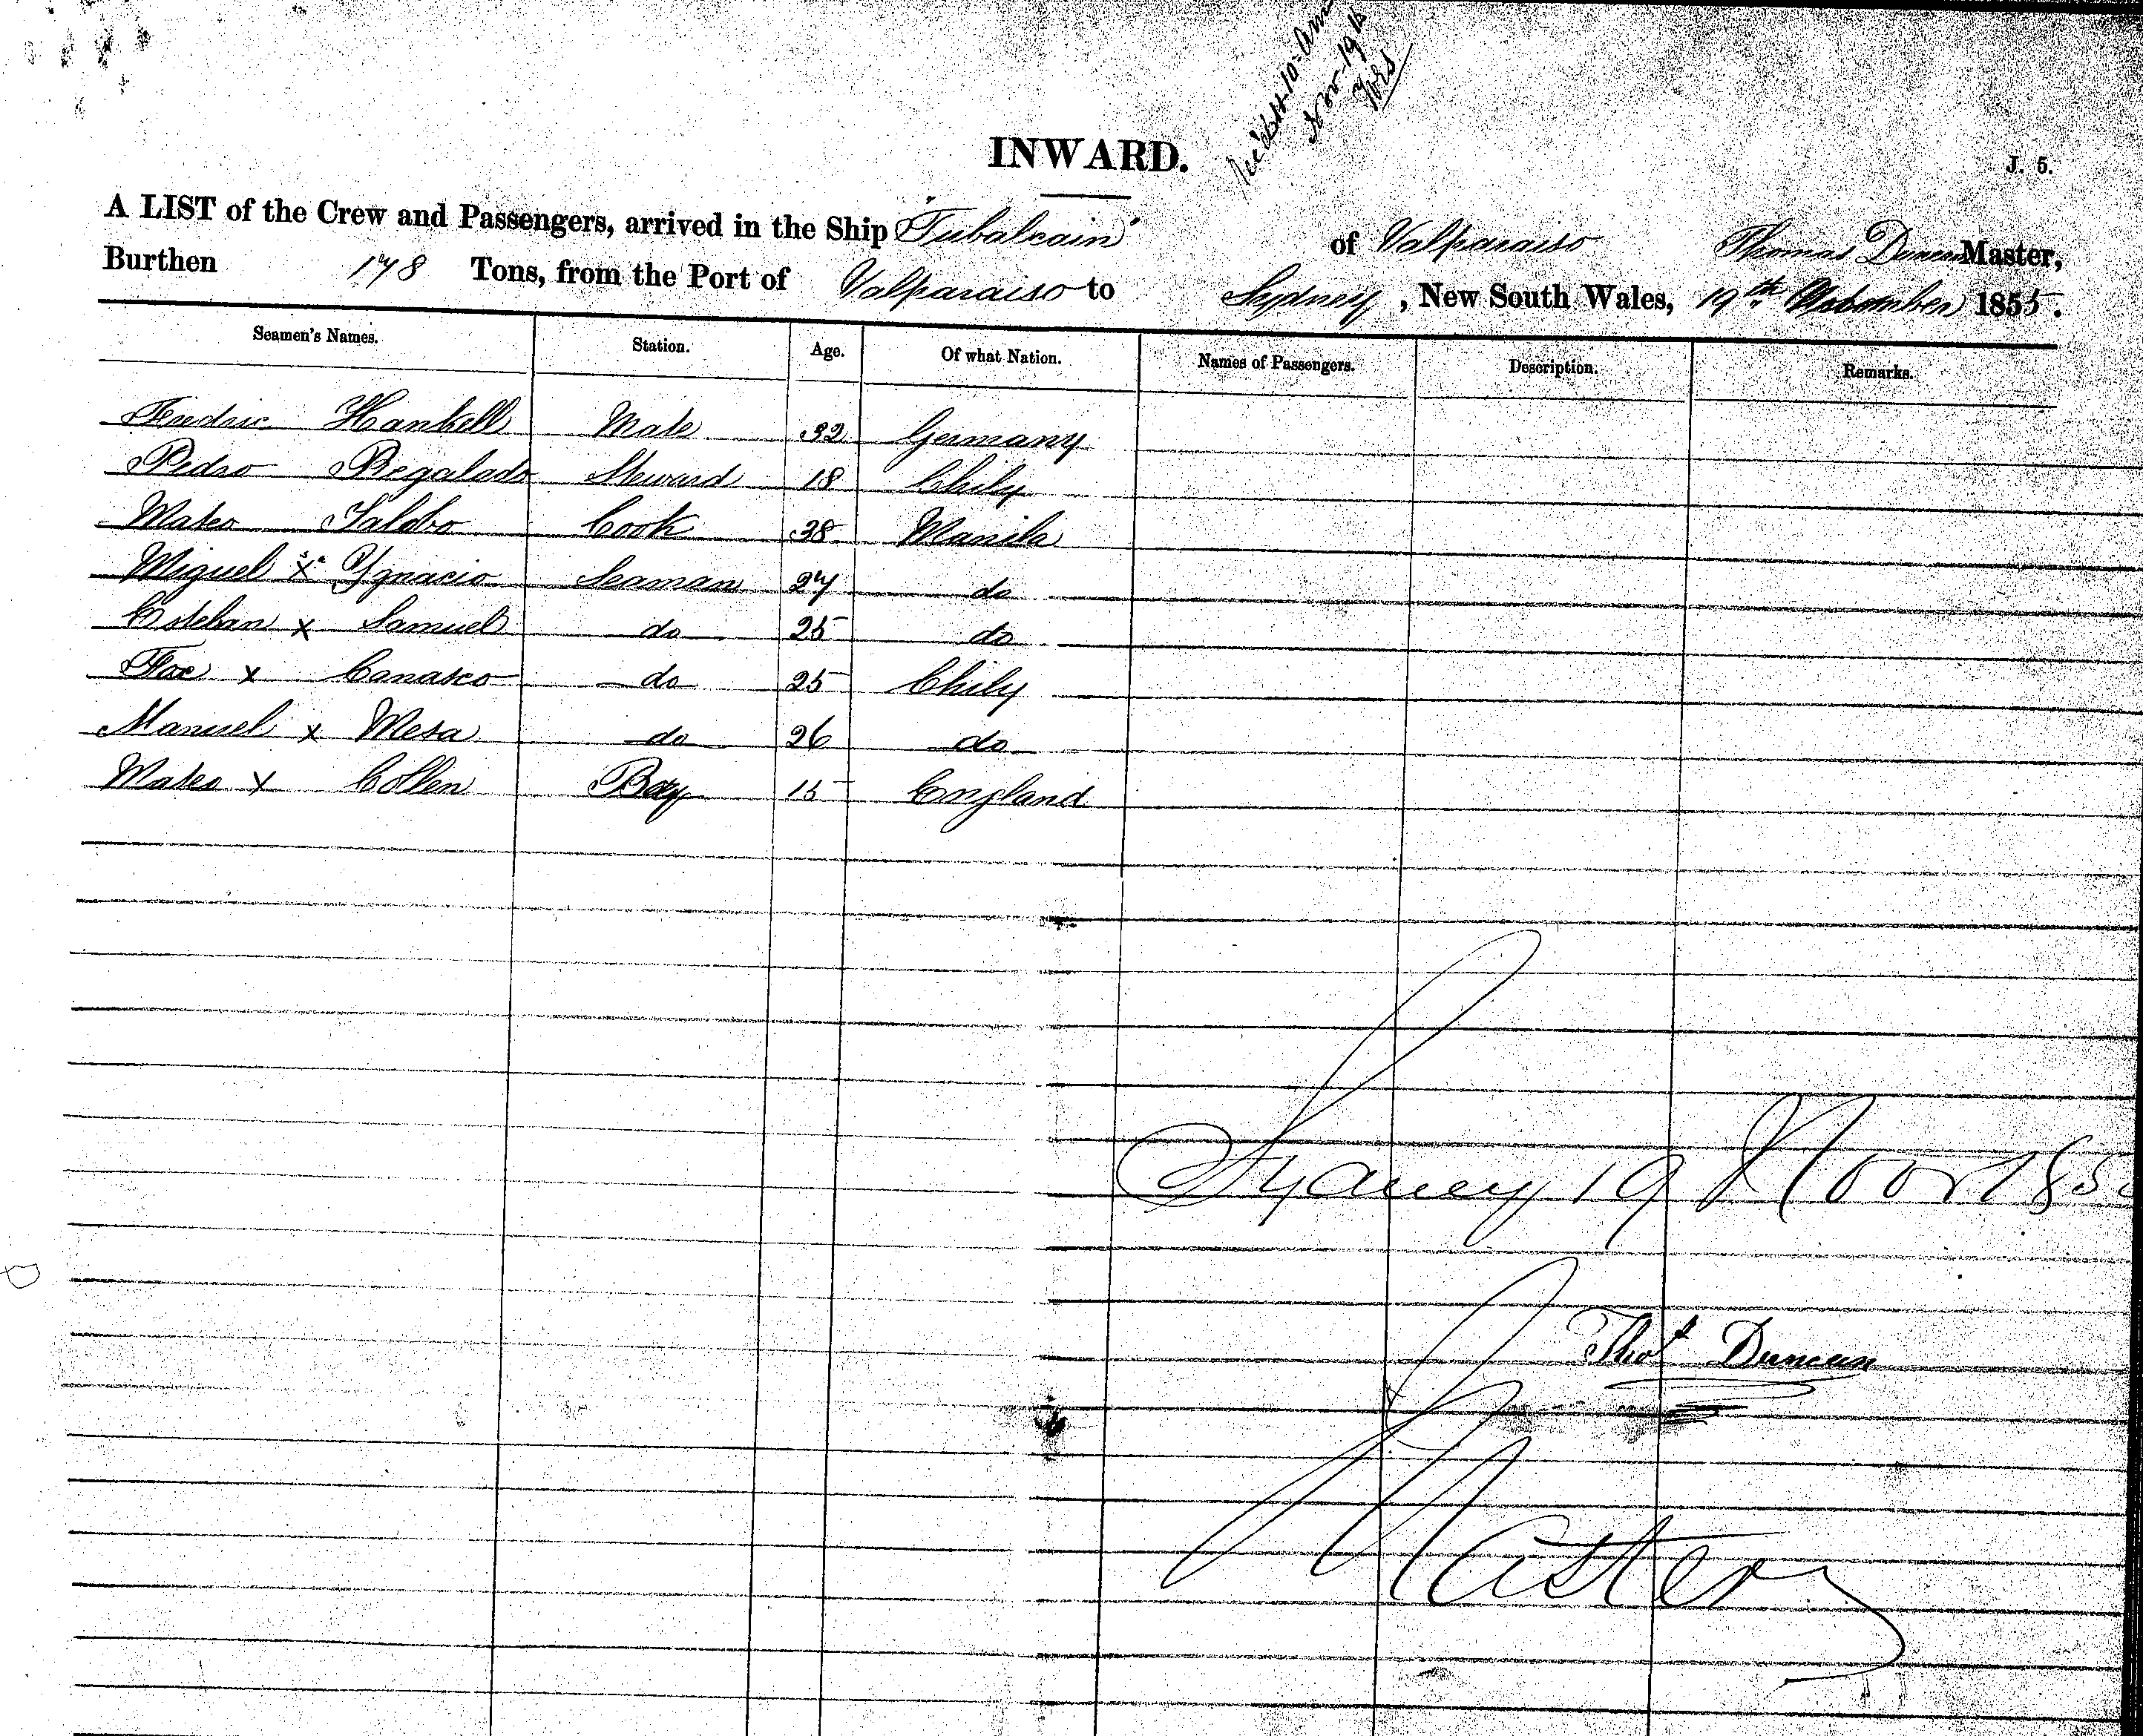 10 am
Nov 19th
INWARD.
J. 5.
A LIST of the Crew and Passengers, arrived in the Ship "Tubalcain" of Valparaiso Thomas Duncan Master,
Burthen 178 Tons, from the Port of Valparaiso to Sydney, New South Wales, 19th November 1855.
Seamen's Names. Station. Age. Of what Nation. Names of Passengers. Description. Remarks.
Fredric Hankell Mate 32 Germany
Pedro Regalado Steward 18 Chily
Mateo Salobo Cook 38 Manila
Miguel x Ygnacio Seaman 27 do
Esteban x Samuel do 25 do
x Canasco do 25 Chily
Manuel x Mesa do 26 do
Mateo x Collen Boy 15 England
Sydney 19 Novr 185
Thos Duncan
Master